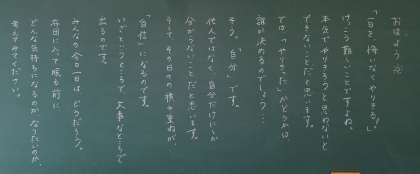 おはよう
「一日を、悔いなくやりきる。」
けっこう難しいことですよね。
本気でやりきろうと思わないと
できないことだと思います。
では、"やりきった"かどうかは、
誰が決めるのでしょう…
そう、「自分」です。
他人ではなく、自分だけにしか
分からないことだと思います。
そして、その日々の積み重ねが、
「自信」になるのです。
いざというところで、大事なところで
出るのです。
みんなの今日一日は、どうだろう。
布団に入って眠る前に
どんな気持ちになるのか、なりたいのか、
考えてみてください。